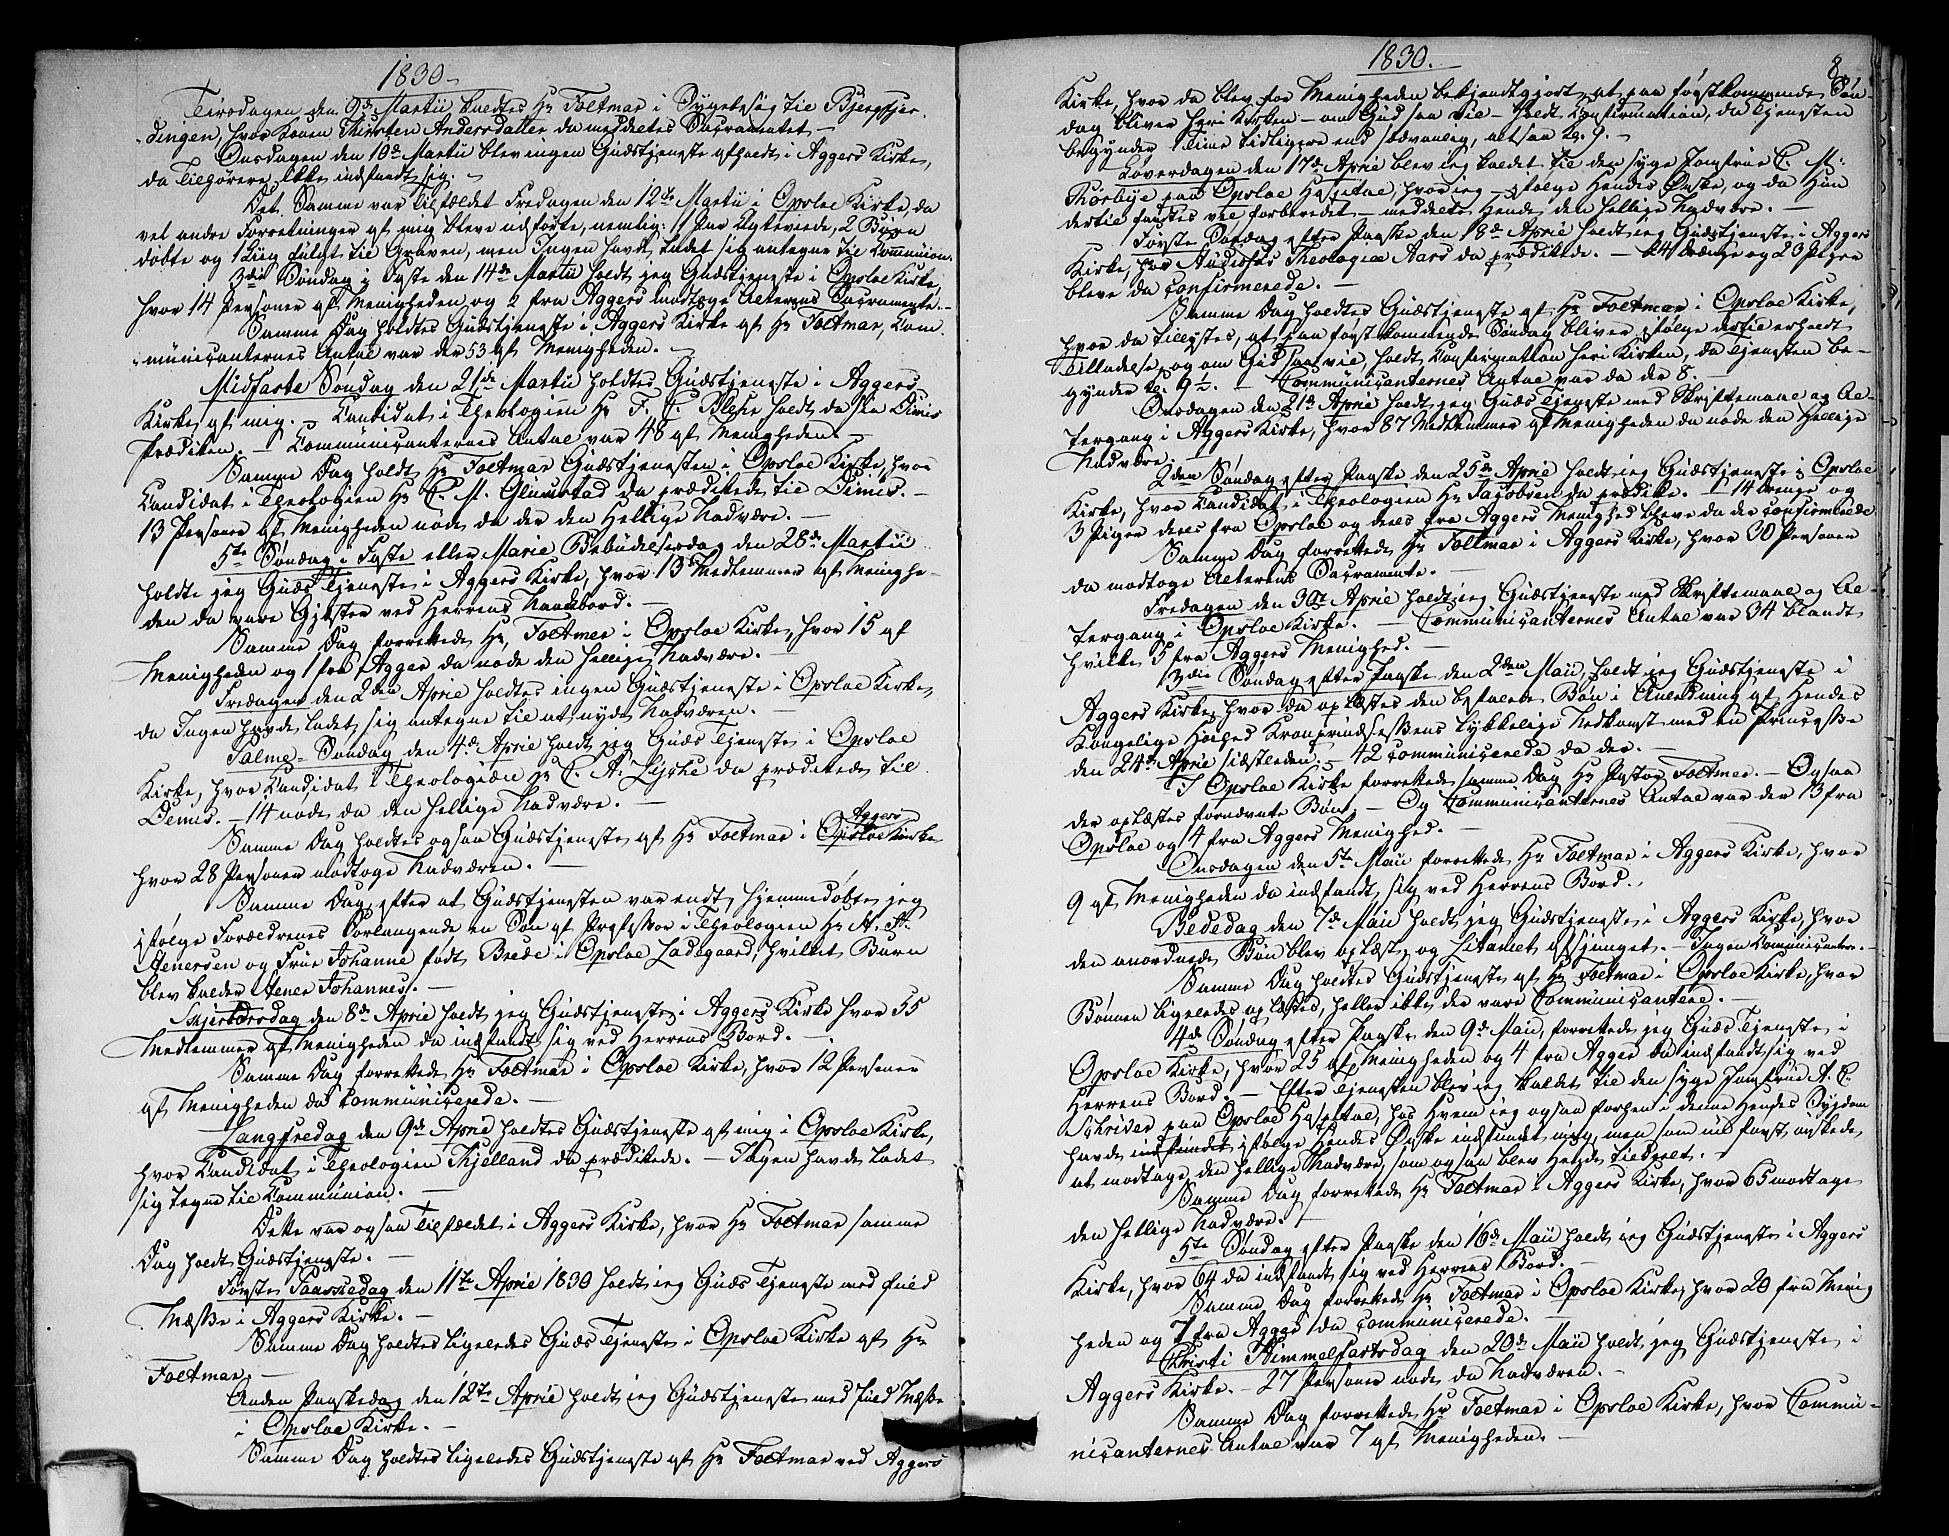 1830
Tirsdagen den 9de Martii kaldtes Hr Foltmar i Sygebesøg til Bjergsjer-
dingen, hvor Konen Kirsten Andersdatter da meddeltes Sacramentet. —
Onsdagen den 10de Martii blev ingen Gudstjeneste afholdt i Aggers Kirke,
da Tilhørere ikke indfandt sig. —
Det Samme var Tilfældet Fredagen den 12te Martii i Opsloe Kirke, da
vel andre Forretninger af mig bleve udførte, nemlig: 1 Par Ægteviede, 2 Børn
døbte og 1 Liig fulgt til Graven, men Ingen havde ladet sig antegne til Communion.
3die Søndag i Faste den 14de Martii holdt jeg Gudstjeneste i Opsloe Kirke,
hvor 14 Personer af Menigheden og 2 fra Aggers modtoge Alterens Sacramente. —
Samme Dag holdtes Gudstjeneste i Aggers Kirke af Hr Foltmar, Com-
municanternes Antal var der 53 af Menigheden. —
Midfaste Søndag den 21de Martii holdtes Gudstjeneste i Aggers
Kirke af mig. — Candidat i Theologien Hr F. C. holdt da sin Dimis
Prædiken. — Communicanternes Antal var 48 af Menigheden. —
Samme Dag holdt Hr Foltmar Gudstjenesten i Opsloe Kirke, hvor
Candidat i Theologien Hr C. M. Glückstad da prædikede til Dimis. —
13 Personer af Menigheden nøde da der den Hellige Nadvere. —
5te Søndag i Faste eller Marie Bebudelsesdag den 28de Martii
holdte jeg Guds Tjeneste i Aggers Kirke, hvor 13 Medlemmer af Menighe-
den da vare Gjester ved Herrens Naadebord. —
Samme Dag forrettede Hr Foltmar i Opsloe Kirke, hvor 15 af
Menigheden og 1 fra Agger da nøde den hellige Nadvere. —
Fredagen den 2den April holdtes ingen Gudstjeneste i Opsloe Kirke,
da Ingen havde ladet sig antegne til at nyde Nadveren. —
Palme-Søndag den 4de April holdt jeg Guds Tjeneste i Opsloe
Kirke, hvor Candidat i Theologien Hr C. A. Lysche da prædikede til
Dimis. — 14 nøde da den hellige Nadvere. —
Samme Dag holdtes ogsaa Gudstjeneste af Hr Foltmar i Opsloe Aggers Kirke
hvor 28 Personer modtoge Nadveren. —
Samme Dag, efter at Gudstjenesten var endt, hjemmedøbte jeg
ifølge Forældrenes Forlangende en Søn af Professor i Theologien Hr
Stenersen og Frue Johanne født Brede i Opsloe Ladegaard, hvilket Barn
blev kaldet Stener Johannes. —
Skjertorsdag den 8de April holdt jeg Gudstjeneste i Aggers Kirke hvor 55
Medlemmer af Menigheden da indfandt sig ved Herrens Bord. —
Samme Dag forrettede Hr Foltmar i Opsloe Kirke, hvor 12 Personer
af Menigheden da communicerede. —
Langfredag den 9de April holdtes Gudstjeneste af mig i Opsloe Kirke,
hvor Candidat i Theologien Kjelland da prædikede. — Ingen havde ladet
sig tegne til Communion. —
Dette var ogsaa Tilfældet i Aggers Kirke, hvor Hr Foltmar samme
Dag holdt Gudstjeneste. —
Første Paaskedag den 11te April 1830 holdt jeg Guds Tjeneste med fuld
Messe i Aggers Kirke. —
Samme Dag holdtes ligeledes Guds Tjeneste i Opsloe Kirke af Hr
Foltmar. —
Anden Paaskedag den 12te April holdt jeg Gudstjeneste med fuld Messe
i Opsloe Kirke. —
Samme Dag holdtes ligeledes Gudstjeneste af Hr Foltmar ved Aggers
1830.
8
Kirke, hvor da blev for Menigheden bekjendtgjort, at paa førstkommende Søn-
dag bliver heri Kirken — om Gud saa vil — holdt Confirmation, da Tjenesten
begynder 1 Time tidligere end sædvanlig, altsaa Kl. 9. —
Løverdagen den 17de April blev jeg kaldet til den syge Jomfrue C. M.
Thorbye paa Opsloe Hospital, hvor jeg — ifølge Hendes Ønske, og da Hun
dertil fandtes vel forberedet — meddelte Hende den hellige Nadvere. —
Første Søndag efter Paaske den 18de April holdt jeg Gudstjeneste i Aggers
Kirke, hvor Studiosus Theologiæ Aars da prædikede. — 24 Drenge og 23 Piger
bleve da confirmerede. —
Samme Dag holdtes Gudstjeneste af Hr Foltmar i Opsloe Kirke,
hvor da tillystes, at paa førstkommende Søndag bliver, ifølge dertil erholdt
Tilladelse, og om Gud saa vil, holdt Confirmation heri Kirken, da Tjenesten be-
gynder Kl. 9½. — Communicanternes Antal var da der 8. —
Onsdagen den 21de April holdt jeg Guds Tjeneste med Skriftemaal og Al-
tergang i Aggers Kirke, hvor 87 Medlemmer af Menigheden da nøde den Hellige
Nadvere. —
2den Søndag efter Paaske den 25de April holdt jeg Gudstjeneste i Opsloe
Kirke, hvor Candidat i Theologien Hr Jacobsen da prædike. — 14 Drenge og
3 Piger deels fra Opsloe og deels fra Aggers Menighed bleve da der confirmerede
Samme Dag forrettede Hr Foltmar i Aggers Kirke, hvor 30 Personer
da modtoge Alterens Sacramente. —
Fredagen den 30te April holdt jeg Gudstjeneste med Skriftemaal og Al-
tergang i Opsloe Kirke. — Communicanternes Antal var 34 blandt
hvilke 5 fra Aggers Menighed. —
3die Søndag efter Paaske den 2den Maii, holdt jeg Gudstjeneste i
Aggers Kirke, hvor da oplæstes den befalede Bøn i Anledning af Hendes
Kongelige Høihed Kronprindsessens lykkelige Nedkomst med en Princesse
den 24de April sidstleden. — 42 communicerede da der. —
I Opsloe Kirke forrettede samme Dag Hr Pastor Foltmar. — Ogsaa
der oplæstes fornævnte Bøn. — Og Communicanternes Antal var der 13 fra
Opsloe og 14 fra Aggers Menighed. —
Onsdagen den 5te Maii forrettede Hr Foltmar i Aggers Kirke, hvor
9 af Menigheden da indfandt sig ved Herrens Bord. —
Bededag den 7de Maii holdt jeg Gudstjeneste i Aggers Kirke, hvor
den anordnede Bøn blev oplæst, og Litaniet afsjunget. — Ingen Communicanter. —
Samme Dag holdtes Gudstjeneste af Hr Foltmar i Opsloe Kirke, hvor
Bønnen ligeledes oplæstes, heller ikke der vare Communicantere. —
4de Søndag efter Paaske den 9de Maii, forrettede jeg Guds Tjeneste i
Opsloe Kirke, hvor 25 af Menigheden og 4 fra Agger da indfandt sig ved
Herrens Bord. — Efter Tjenesten blev jeg kaldet til den syge Jomfrue A. C.
Schriver paa Opsloe Hospital, hos Hvem jeg ogsaa forhen i denne Hendes Sygdom
havde indfundet ifølge Hendes Ønske indfundet mig, men som nu først ønskede
at modtage den hellige Nadvere, som ogsaa blev Hende tildeelt. —
Samme Dag forrettede Hr Foltmar i Aggers Kirke, hvor 65 modtoge
den hellige Nadvere. —
5te Søndag efter Paaske den 16de Maii holdt jeg Gudstjeneste i Aggers
Kirke, hvor 64 da indfandt sig ved Herrens Bord. —
Samme Dag forrettede Hr Foltmar i Opsloe Kirke, hvor 20 fra Menig
heden og 7 fra Agger da communicerede. —
Christi Himmelfartsdag den 20de Maii holdt jeg Gudstjeneste i
Aggers Kirke. — 27 Personer nøde da Nadveren. —
Samme Dag forrettede Hr Foltmar i Opsloe Kirke, hvor Commu-
nicanternes Antal var 7 af Menigheden. —